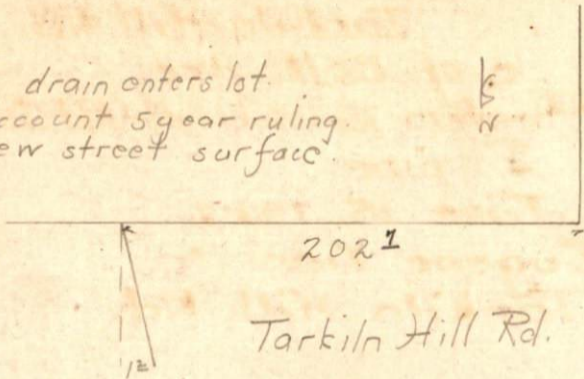 drain enters lot.
ccount 5 year ruling.
ew street surface.
202 1
Tarkiln Hill Rd.
12